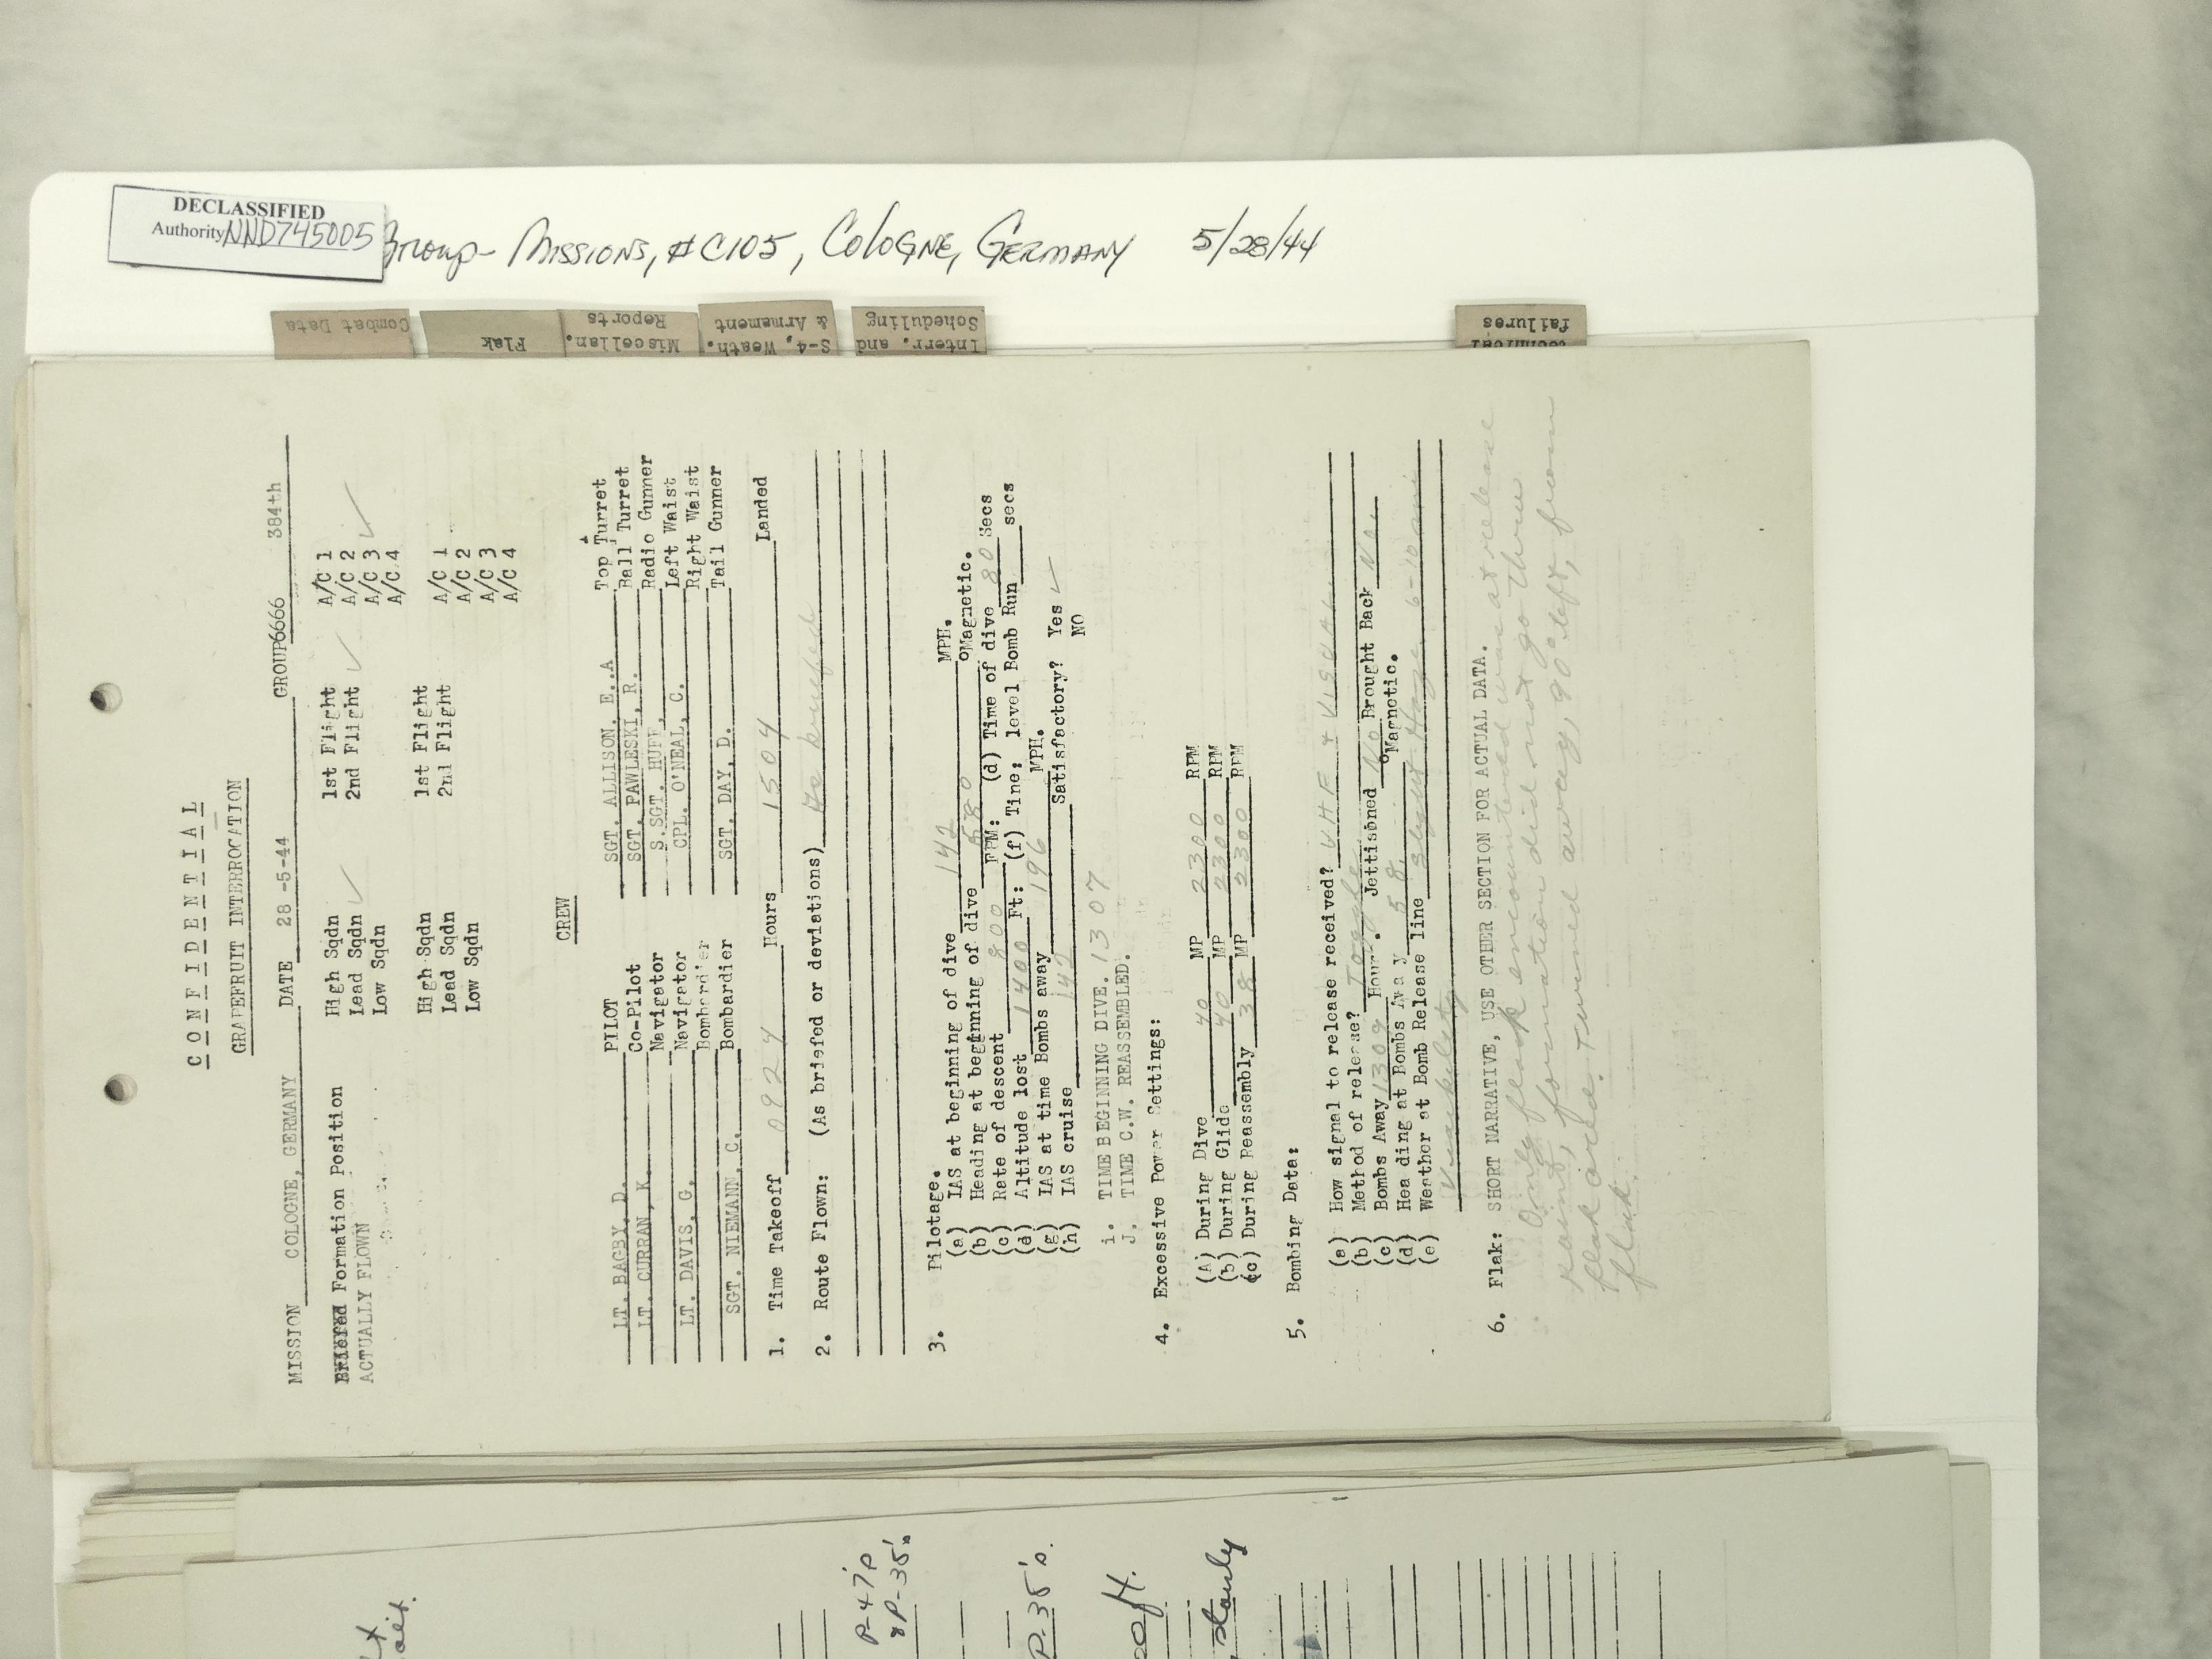 DECLASSIFIED
Authority NND745005
Group- Missions, #C105, Cologne, Germany 5/28/44
Combat Data
Flak
Miscellan.
Reports
S-4, Weath.
& Armament
Interr. and
Scheduling
failures
CONFIDENTIAL
GRAPEFRUIT INTERROGATION
MISSION COLOGNE, GERMANY DATE 28 -5-44 GROUP 384th
Briefed Formation Position High Sqdn 1st Flight A/C 1
ACTUALLY FLOWN Lead Sqdn ✓ 2nd Flight ✓ A/C 2
Low Sqdn A/C 3 ✓
A/C 4
High Sqdn 1st Flight A/C 1
Lead Sqdn 2nd Flight A/C 2
Low Sqdn A/C 3
A/C 4
CREW
LT. BAGBY, D. PILOT SGT. ALLISON, E..A Top Turret
LT. CURRAN, K. Co-Pilot SGT. PAWLESKI, R. Ball Turret
Navigator S.SGT. HUFF, Radio Gunner
LT. DAVIS, G. Navigator CPL. O'NEAL, C. Left Waist
Bombardier Right Waist
SGT. NIEMANN, C. Bombardier SGT. DAY, D. Tail Gunner
1. Time Takeoff 0924 Hours 1504 Landed
2. Route Flown: (As briefed or deviations) As briefed
3. Pilotage.
(a) IAS at beginning of dive 142 MPH.
(b) Heading at beginning of dive 080 °Magnetic.
(c) Rate of descent 800 FPM: (d) Time of dive 80 Secs
(e) Altitude lost 1400 Ft: (f) Time; level Bomb Run secs
(g) IAS at time Bombs away 196 MPH.
(h) IAS cruise 147 Satisfactory? Yes ✓
NO
i. TIME BEGINNING DIVE. 1307
J. TIME C.W. REASSEMBLED.
4. Excessive Power Settings:
(A) During Dive 40 MP 2300 RPM
(b) During Glide 40 MP 2300 RPM
(c) During Reassembly 38 MP 2300 RPM
5. Bombing Data:
(a) How signal to release received? VHF & VISUAL.
(b) Method of release? Toggle
(c) Bombs Away 1309 Hour. Jettisoned No Brought Back No.
(d) Heading at Bombs Away 58 °Magnetic.
(e) Weather at Bomb Release line Slight Haze 6-10 mi
6. Flak: SHORT NARRATIVE, USE OTHER SECTION FOR ACTUAL DATA.
Only flak encountered was at release
point, formation did not go thru
flak area. Turned away, 90° left, from
flak.
P-47's
& P-38's
P-38's.